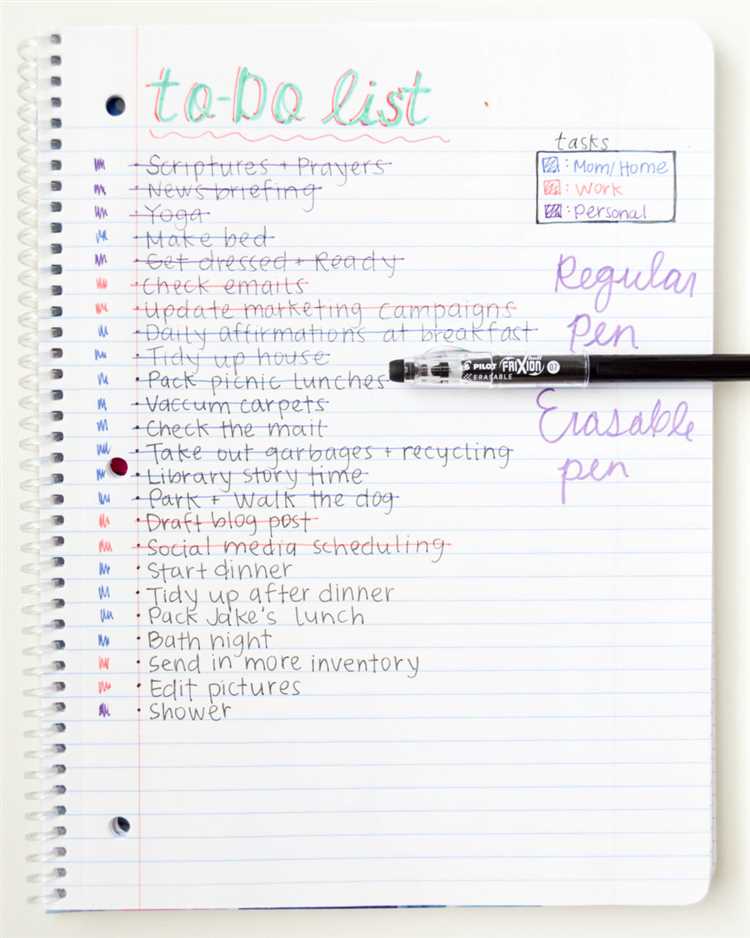 to-Do list
tasks
: Mom/Home
: Work
: Personal
• Scriptures + Prayers
• News briefing
• Yoga
• Make bed
• Get dressed + Ready
• Check emails
• Update marketing campaigns
• Daily affirmations at breakfast
• Tidy up house
• Pack picnic lunches
• Vaccum carpets
• Check the mail
• Take out garbages + recycling
• Library story time
• Park + Walk the dog
• Draft blog post
• Social media scheduling
• Start dinner
• Tidy up after dinner
• Pack Jake's lunch
• Bath night
• Send in more inventory
• Edit pictures
• Shower
Regular
Pen
PILOT FRIXION 07
ERASABLE
Erasable
pen